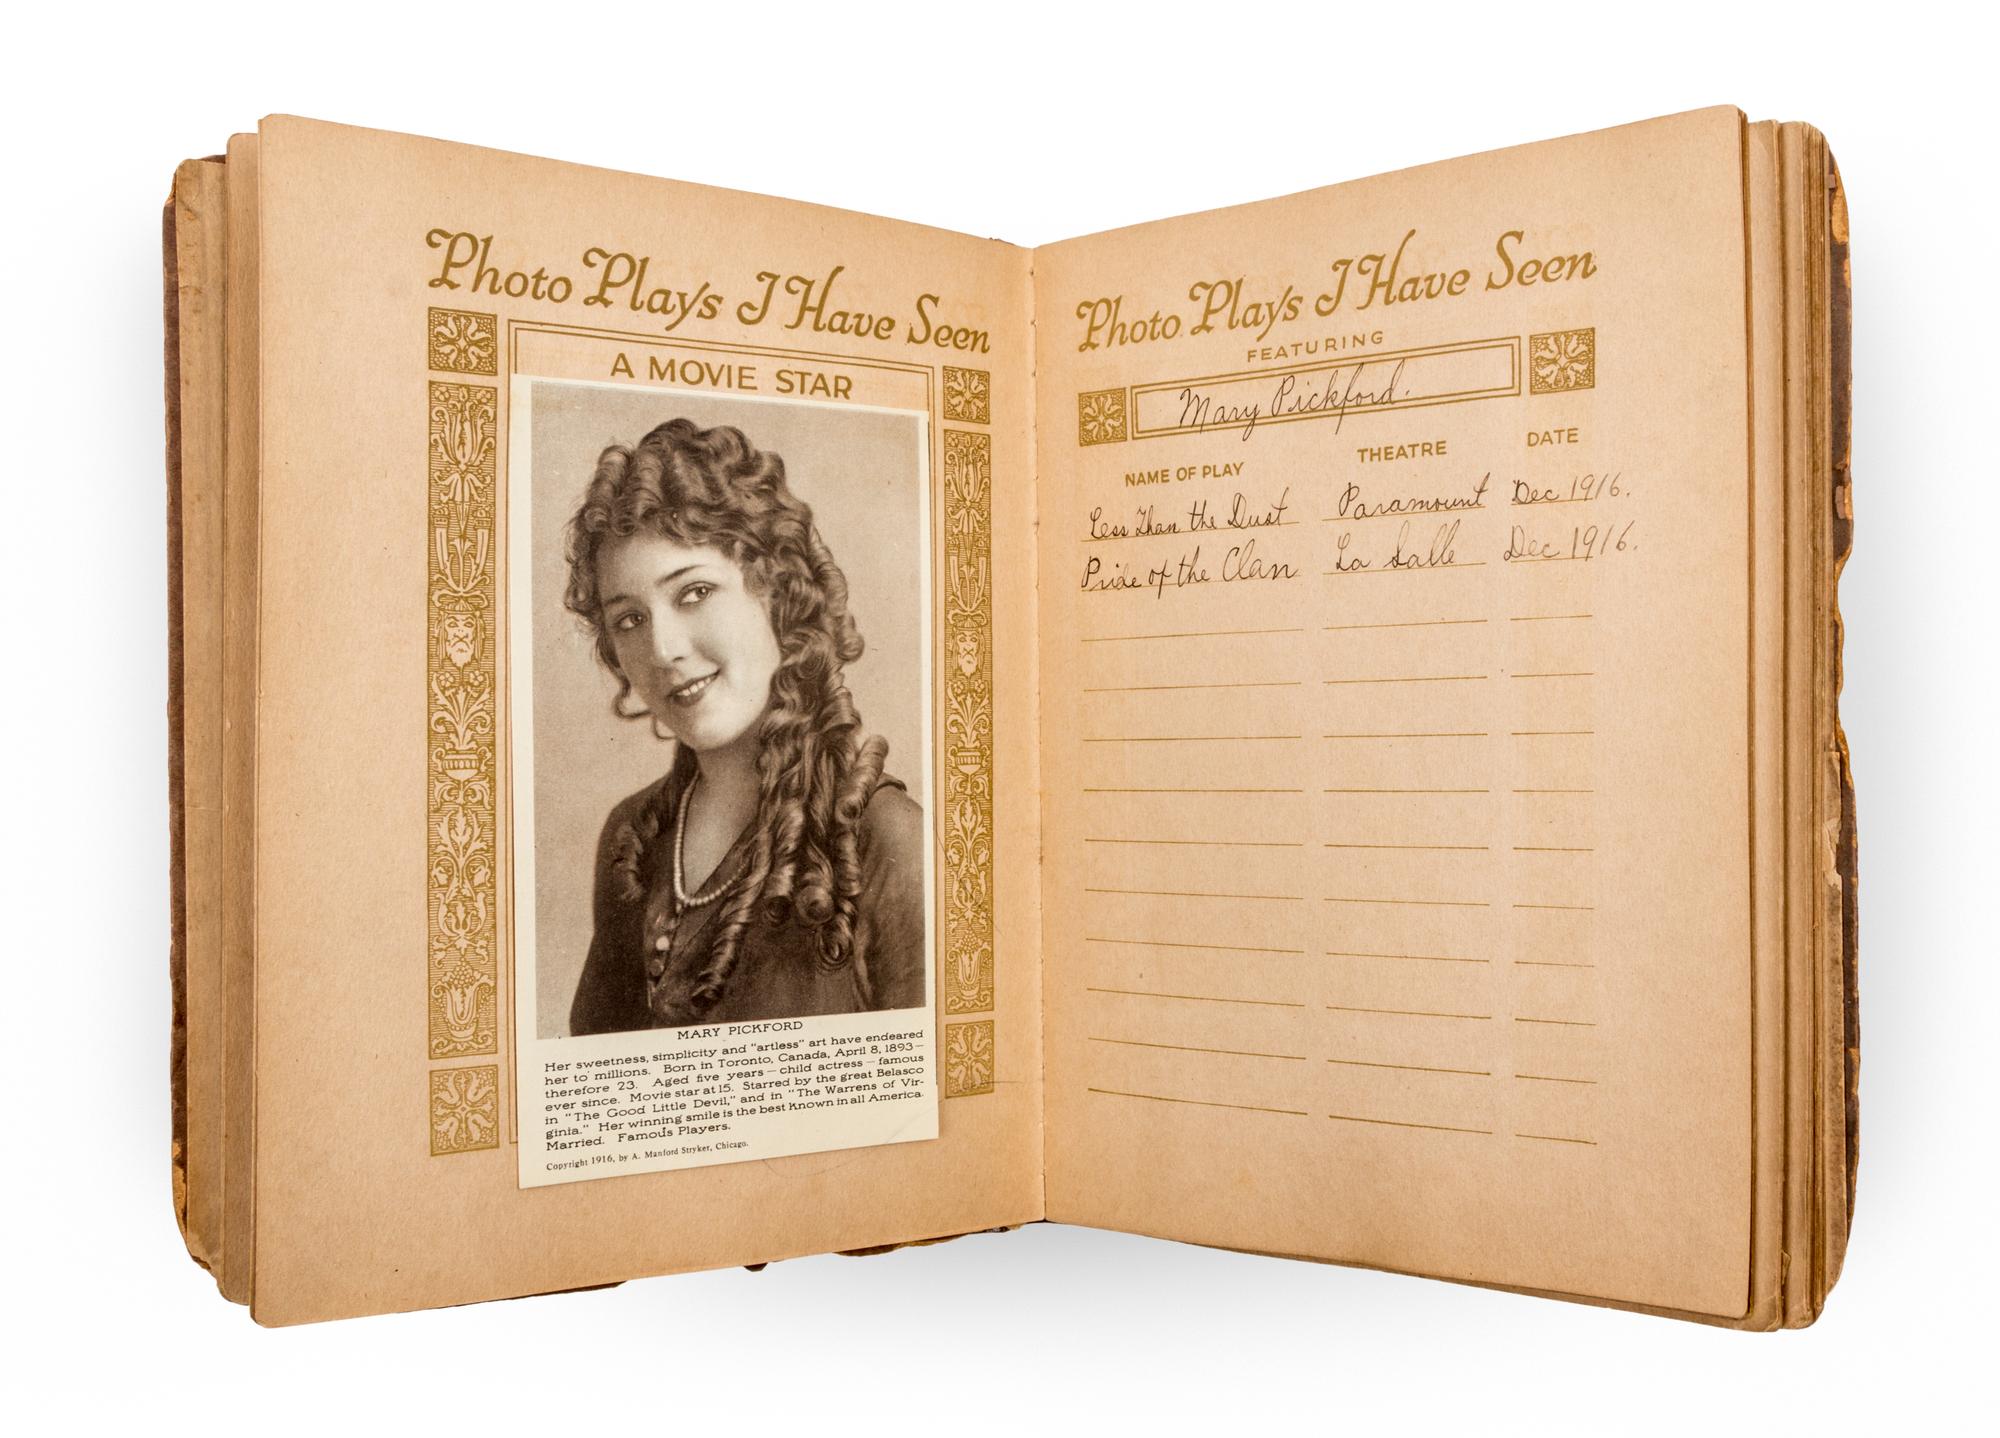 Photo Plays I Have Seen
A MOVIE STAR
MARY PICKFORD
Her sweetness, simplicity and "artless" art have endeared
her to millions. Born in Toronto, Canada, April 8, 1893—
therefore 23. Aged five years—child actress—famous
ever since. Movie star at 15. Starred by the great Belasco
in "The Good Little Devil," and in "The Warrens of Vir-
ginia." Her winning smile is the best known in all America.
Married. Famous Players.
Copyright 1916, by A. Manford Stryker, Chicago.
Photo Plays I Have Seen
FEATURING
Mary Pickford.
NAME OF PLAY THEATRE DATE
Less Than the Dust Paramount Dec 1916.
Pride of the Clan La Salle Dec 1916.